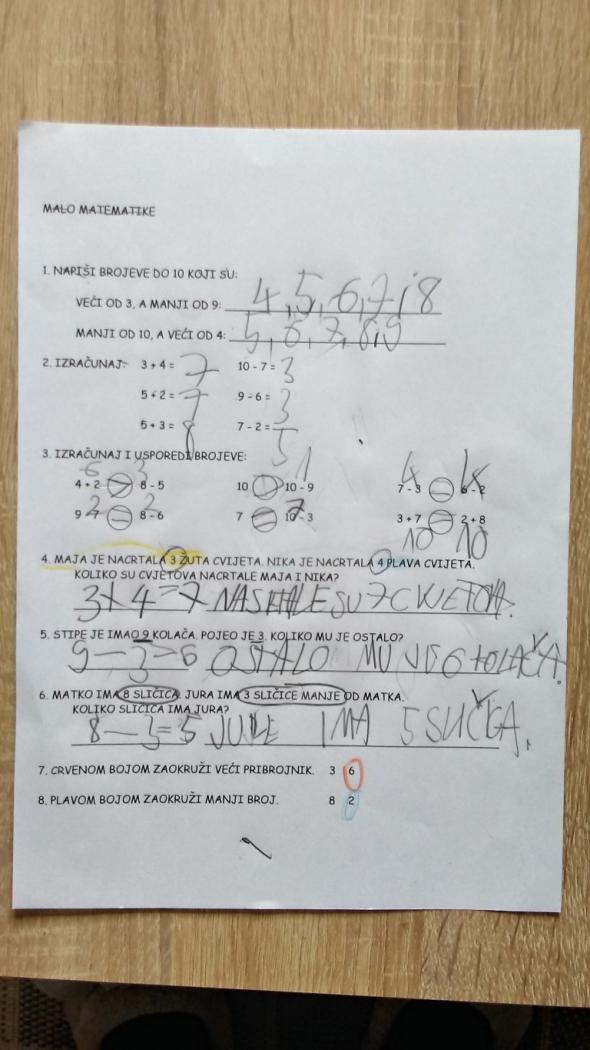 MALO MATEMATIKE
1. NAPIŠI BROJEVE DO 10 KOJI SU:
VEĆI OD 3, A MANJI OD 9: 4,5,6,7 i 8
MANJI OD 10, A VEĆI OD 4: 5,6,7,8i9
2. IZRAČUNAJ: 3 + 4 = 7 10 - 7 = 3
5 + 2 = 7 9 - 6 = 3
5 + 3 = 8 7 - 2 = 5
3. IZRAČUNAJ I USPOREDI BROJEVE:
6 3 1 4 4
4 + 2 8 - 5 10 10 - 9 7 - 3 6 - 2
9 - 7 2 8 - 6 2 7 10 - 3 7 3 + 7 = 2 + 8
10 10
4. MAJA JE NACRTALA 3 ŽUTA CVIJETA. NIKA JE NACRTALA 4 PLAVA CVIJETA.
KOLIKO SU CVJETOVA NACRTALE MAJA I NIKA?
3+4=7 SU 7
5. STIPE JE IMAO 9 KOLAČA. POJEO JE 3. KOLIKO MU JE OSTALO?
9-3=6 OSTALO MU JE 6 KOLAČA.
6. MATKO IMA 8 SLIČICA. JURA IMA 3 SLIČICE MANJE OD MATKA.
KOLIKO SLIČICA IMA JURA?
8-3=5 IMA 5
7. CRVENOM BOJOM ZAOKRUŽI VEĆI PRIBROJNIK. 3 6
8. PLAVOM BOJOM ZAOKRUŽI MANJI BROJ. 8 2